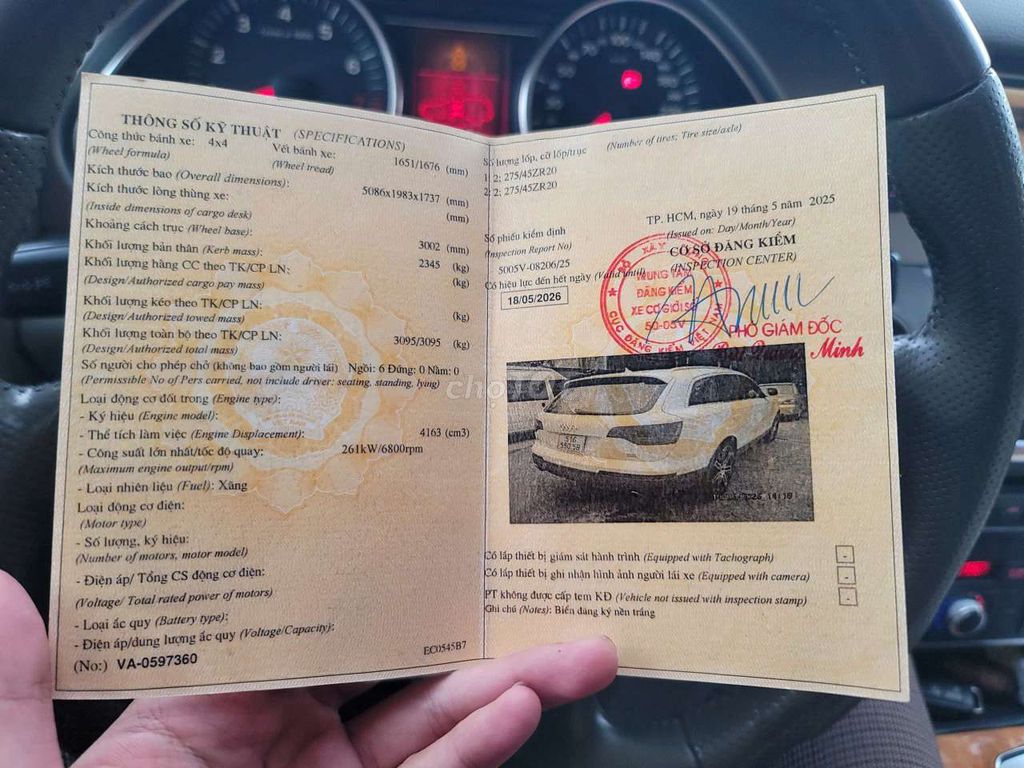 THÔNG SỐ KỸ THUẬT (SPECIFICATIONS)
Công thức bánh xe: 4x4 Vết bánh xe: 1651/1676 (mm)
(Wheel formula) (Wheel tread)
Kích thước bao (Overall dimensions): 5086x1983x1737 (mm)
Kích thước lòng thùng xe: (mm)
(Inside dimensions of cargo desk)
Khoảng cách trục (Wheel base): 3002 (mm)
Khối lượng bản thân (Kerb mass): 2345 (kg)
Khối lượng hàng CC theo TK/CP LN: (kg)
(Design/Authorized cargo pay mass)
Khối lượng kéo theo TK/CP LN: (kg)
(Design/Authorized towed mass)
Khối lượng toàn bộ theo TK/CP LN: 3095/3095 (kg)
(Design/Authorized total mass)
Số người cho phép chở (không bao gồm người lái) Ngồi: 6 Đứng: 0 Nằm: 0
(Permissible No of Pers carried, not include driver: seating, standing, lying)
Loại động cơ đốt trong (Engine type):
- Ký hiệu (Engine model):
- Thể tích làm việc (Engine Displacement): 4163 (cm3)
- Công suất lớn nhất/tốc độ quay: 261kW/6800rpm
(Maximum engine output/rpm)
- Loại nhiên liệu (Fuel): Xăng
Loại động cơ điện:
(Motor type)
- Số lượng, ký hiệu:
(Number of motors, motor model)
- Điện áp/ Tổng CS động cơ điện:
(Voltage/ Total rated power of motors)
- Loại ắc quy (Battery type):
- Điện áp/dung lượng ắc quy (Voltage/Capacity):
(No:) VA-0597360
EC0545B7
Số lượng lốp, cỡ lốp/trục (Number of tires; Tire size/axle)
1: 2; 275/45ZR20
2: 2; 275/45ZR20
TP. HCM, ngày 19 tháng 5 năm 2025
(Issued on: Day/Month/Year)
Số phiếu kiểm định
(Inspection Report No)
CƠ SỞ ĐĂNG KIỂM
(INSPECTION CENTER)
5005V-08206/25
Có hiệu lực đến hết ngày (Valid until)
18/05/2026
TRUNG TÂM
ĐĂNG KIỂM
XE CƠ GIỚI SỐ
50-05V
CỤC ĐĂNG KIỂM VIỆT NAM
PHÓ GIÁM ĐỐC
Minh
chợ
Có lắp thiết bị giám sát hành trình (Equipped with Tachograph) -
Có lắp thiết bị ghi nhận hình ảnh người lái xe (Equipped with camera) -
PT không được cấp tem KĐ (Vehicle not issued with inspection stamp) -
Ghi chú (Notes): Biển đăng ký nền trắng